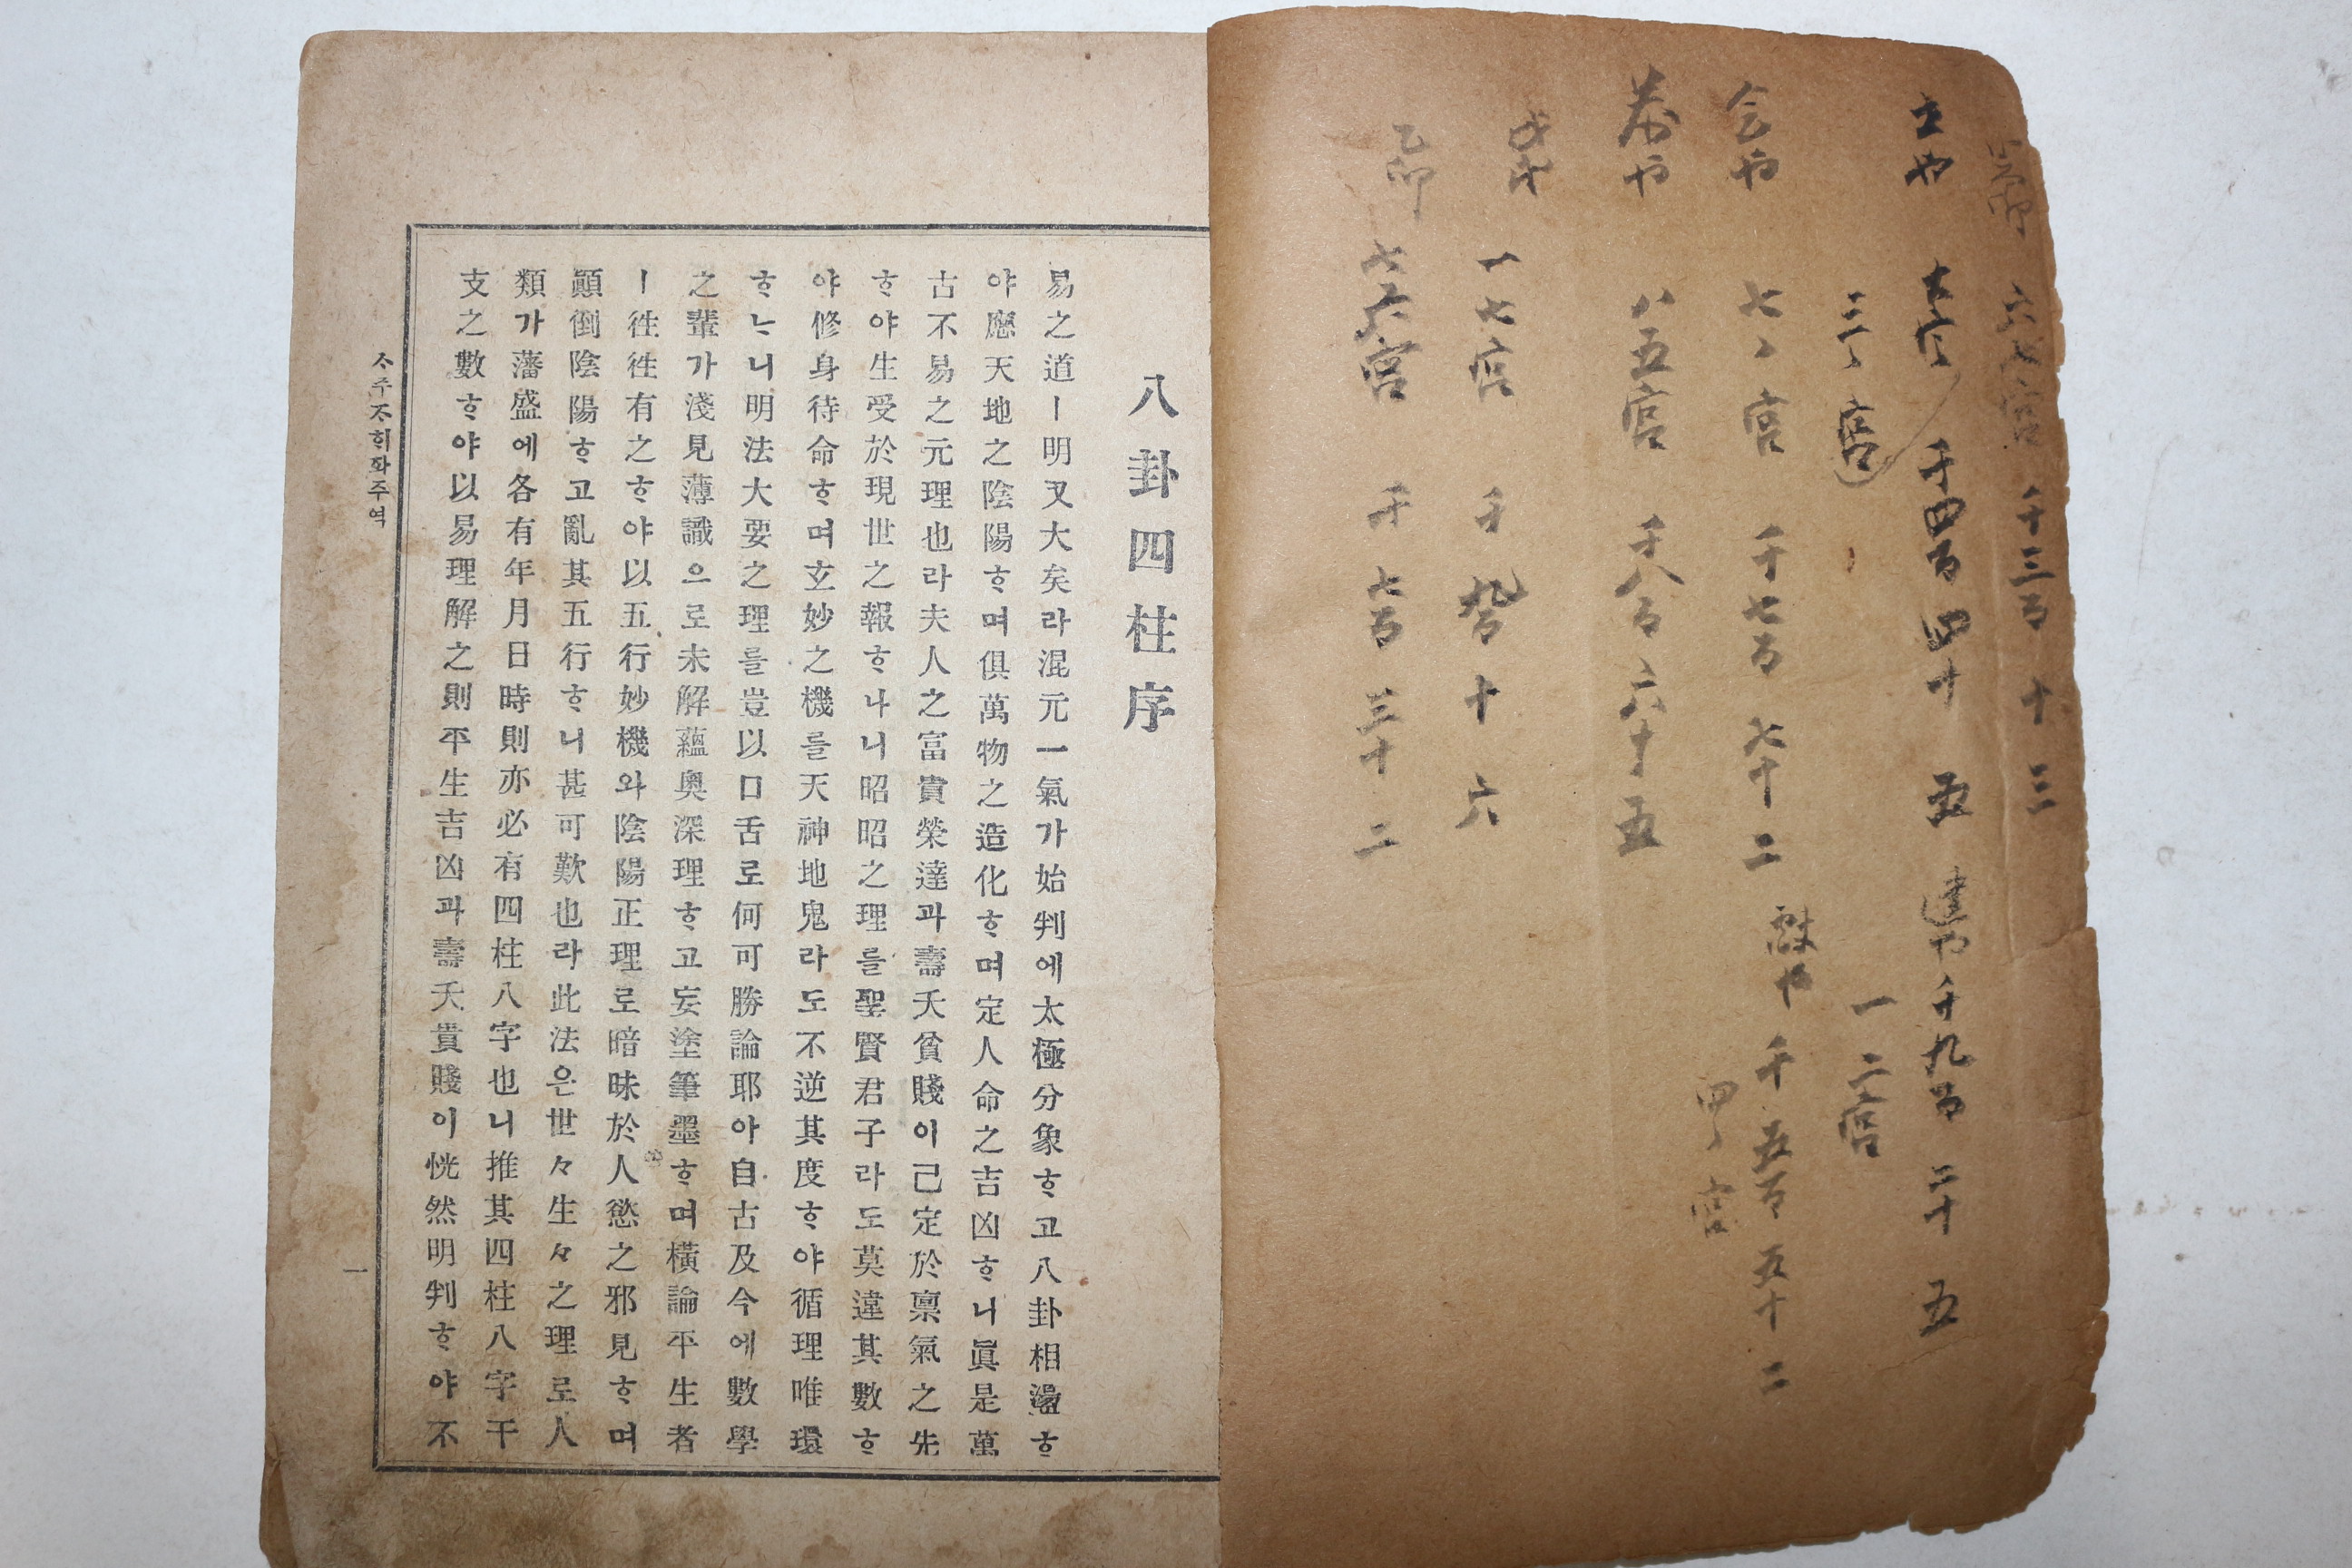 六七宮 千三百十三
千四百四十五 千九百二十五
三、宮 一二宮
七、宮 千七百七十二 千五百五十二
宮
八五宮 千八百六十五
一七宮 千九百十六
乙卯 七六宮 千七百三十二
八卦四柱序
易之道ㅣ明又大矣라混元一氣가始判에太極分象ᄒᆞ고八卦相盪ᄒᆞ
야應天地之陰陽ᄒᆞ며俱萬物之造化ᄒᆞ며定人命之吉凶ᄒᆞ니眞是萬
古不易之元理也라夫人之富貴榮達과壽夭貧賤이己定於稟氣之先
ᄒᆞ야生受於現世之報ᄒᆞ나니昭昭之理를聖賢君子라도莫違其數ᄒᆞ
야修身待命ᄒᆞ며玄妙之機를天神地鬼라도不逆其度ᄒᆞ야循理唯環
ᄒᆞᄂᆞ니明法大要之理를豈以口舌로何可勝論耶아自古及今에數學
之輩가淺見薄識으로未解蘊奧深理ᄒᆞ고妄塗筆墨ᄒᆞ며橫論平生者
ㅣ徃徃有之ᄒᆞ야以五行妙機와陰陽正理로暗昧於人慾之邪見ᄒᆞ며
顚倒陰陽ᄒᆞ고亂其五行ᄒᆞ니甚可歎也라此法은世々生々之理로人
類가藩盛에各有年月日時則亦必有四柱八字也니推其四柱八字干
支之數ᄒᆞ야以易理解之則平生吉凶과壽夭貴賤이恍然明判ᄒᆞ야不
ᄉᆞ주ᄌᆞ 주역 一